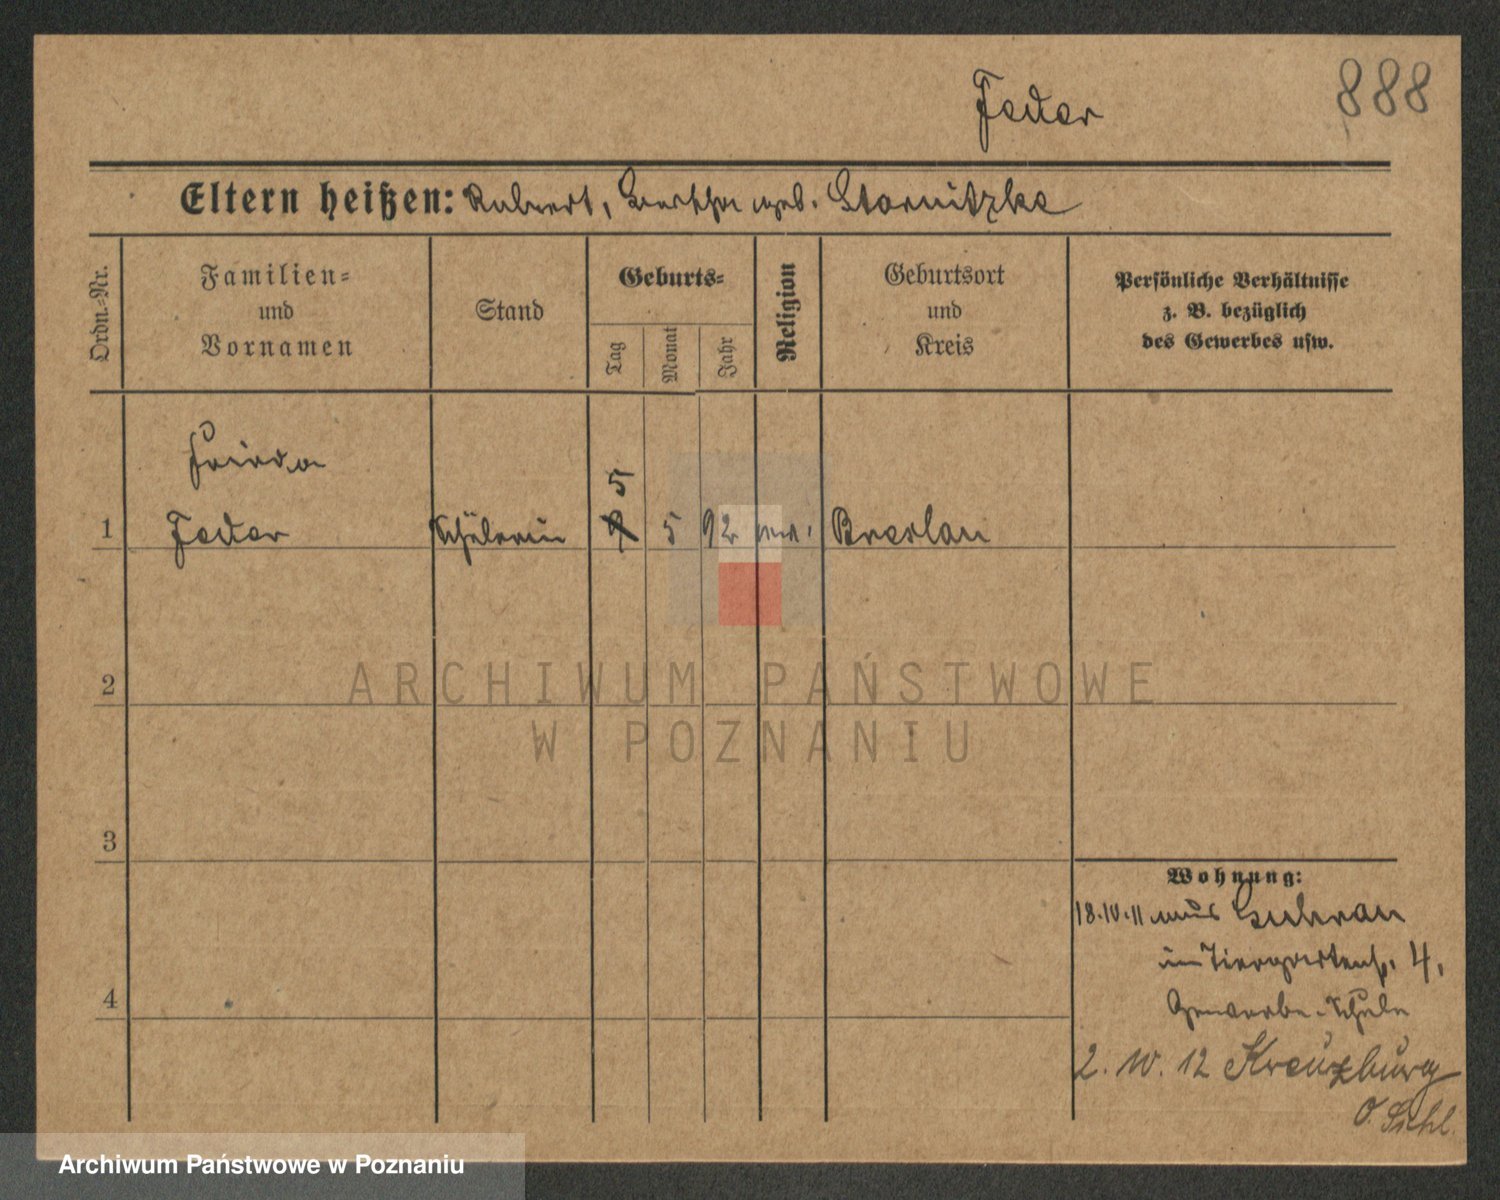 888
Feder
Eltern heißen: Robert, Bertha geb. Starnitzke
Ordn.-Nr.
Familien=
und
Vornamen
Stand
Geburts=
Tag
Monat
Jahr
Religion
Geburtsort
und
Kreis
Persönliche Verhältnisse
z. B. bezüglich
des Gewerbes usw.
Frieda
5
1 Feder Schülerin 9 5 92 ev. Breslau
2
ARCHIWUM PAŃSTWOWE
W POZNANIU
3
Wohnung:
18.10.11 aus Guhrau
in Tiergartenstr. 4,
4
Gewerbe-Schule
2. IV. 12 Kreuzburg
O. Schl.
Archiwum Państwowe w Poznaniu